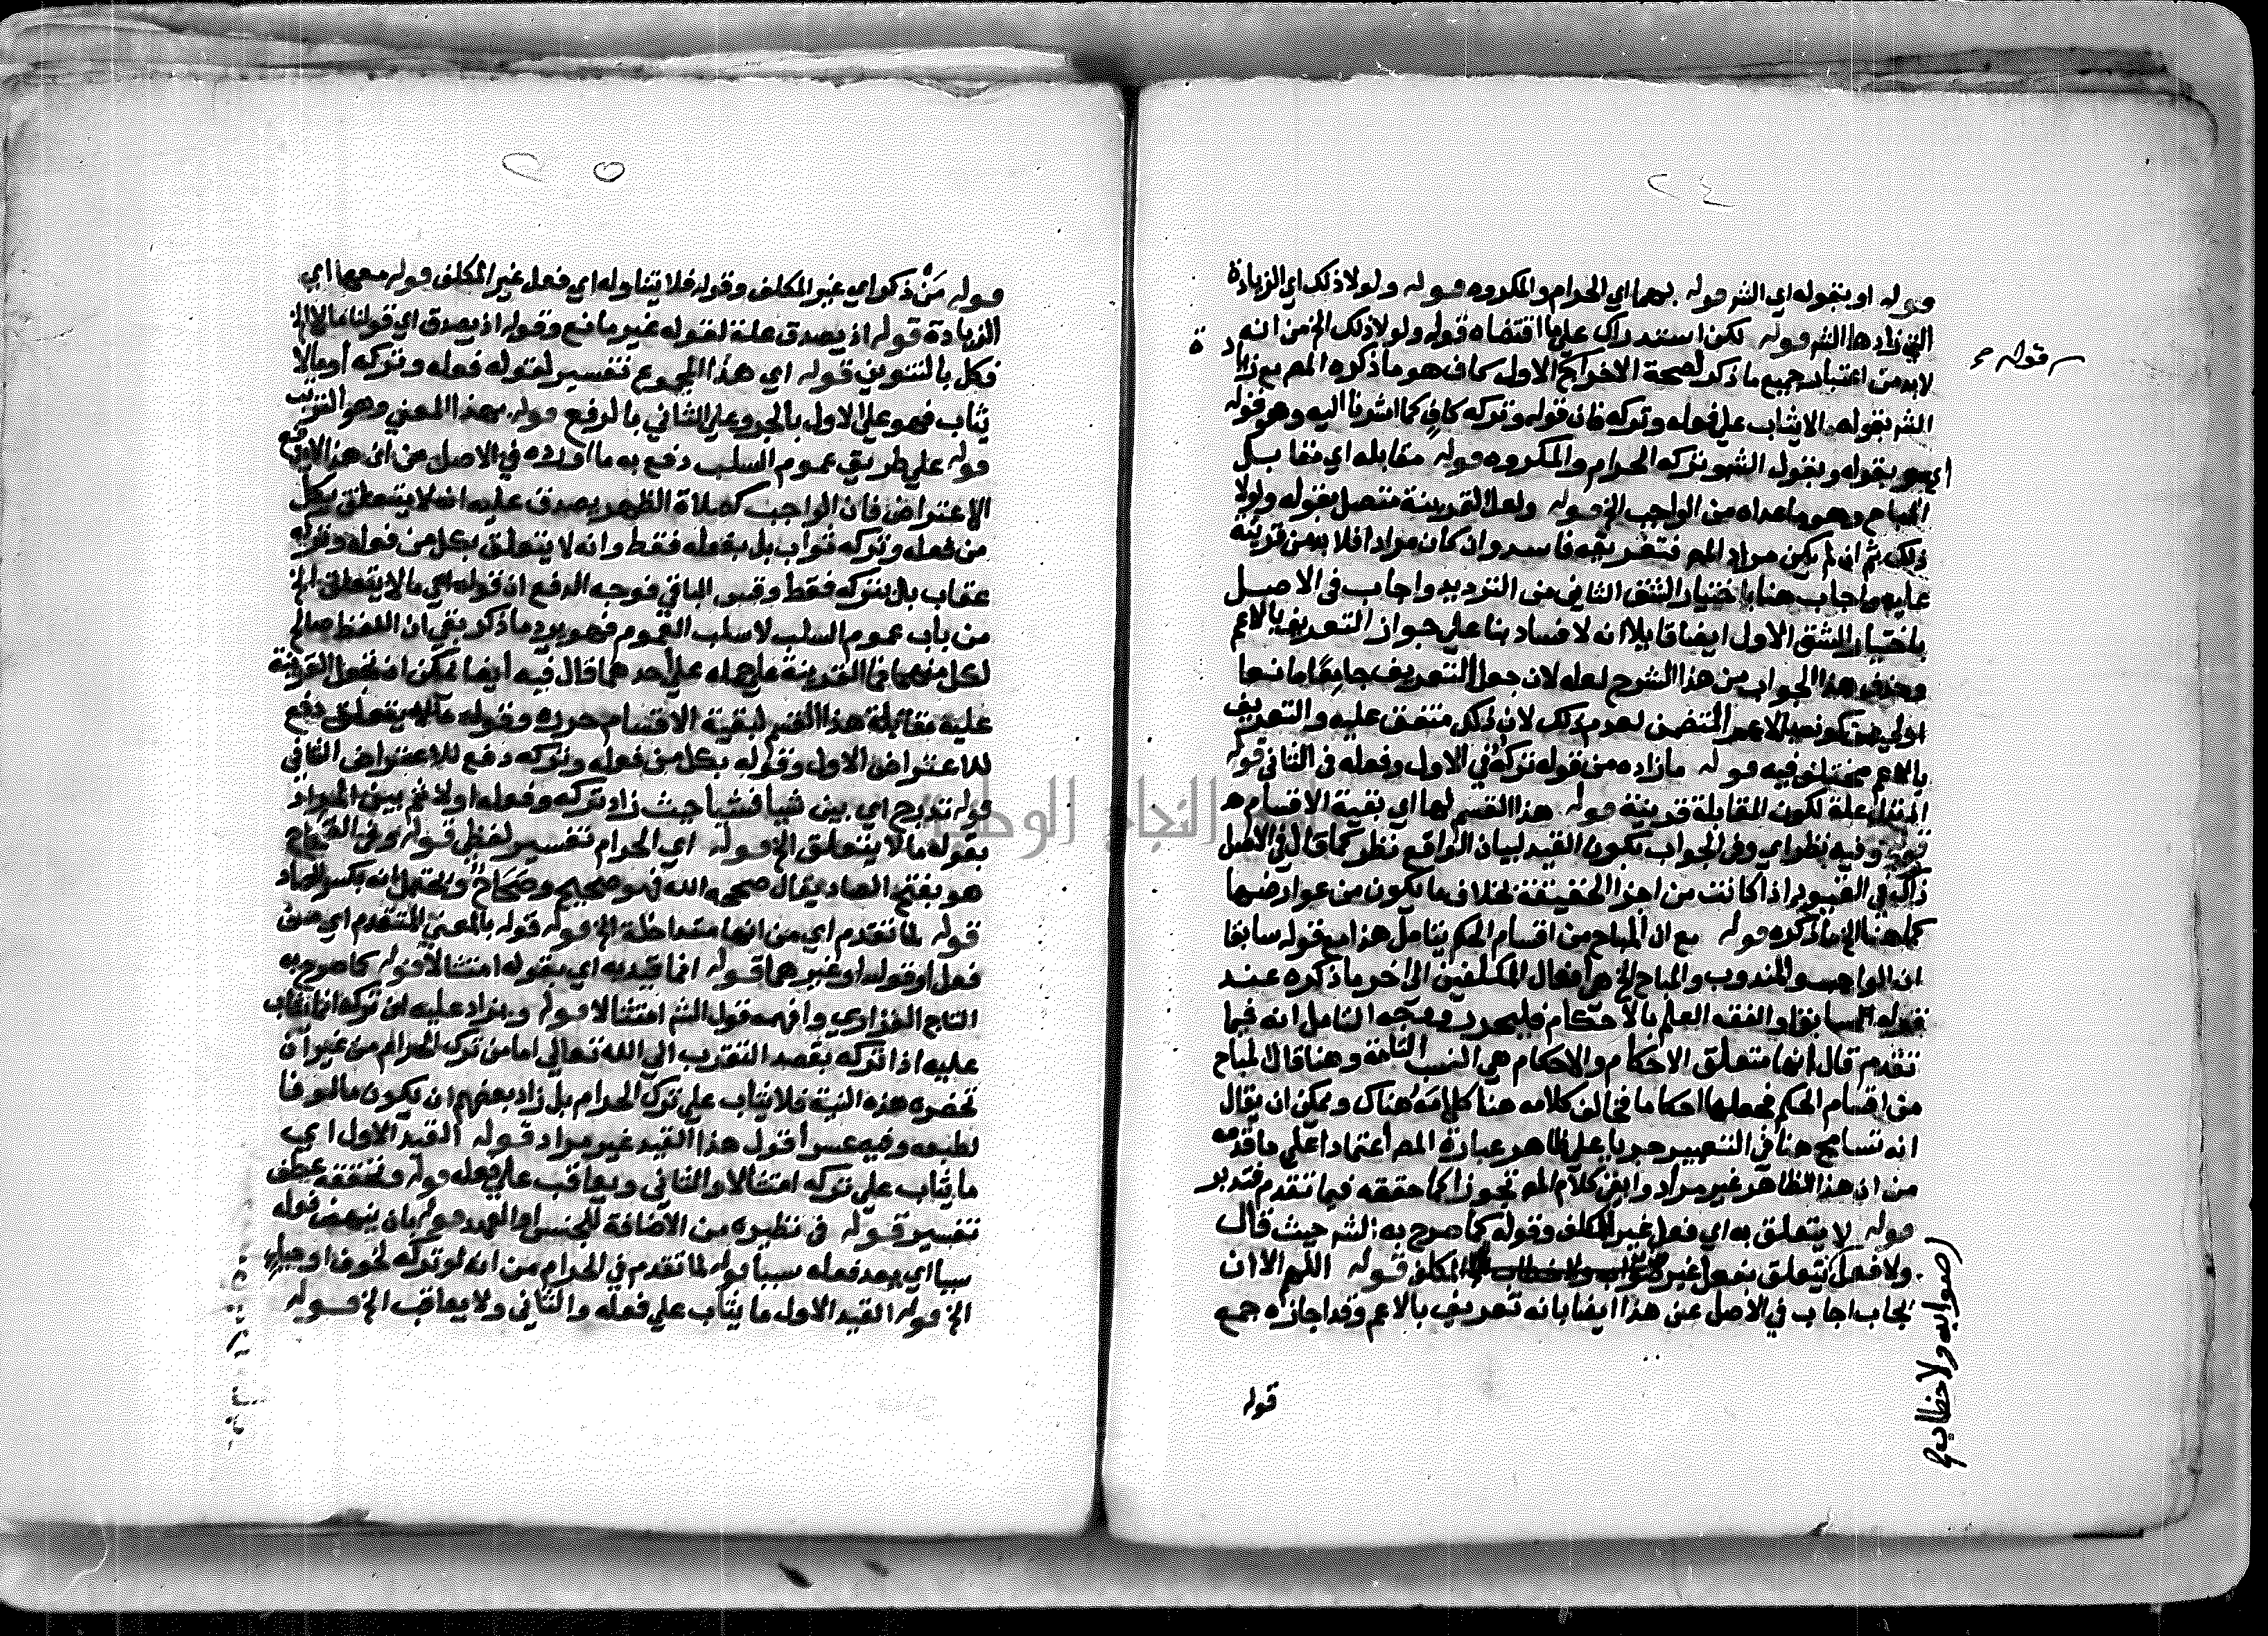 ٢٤
قوله او بقوله اي الشر قوله بهما اي الحرام والمكروه قوله ولولا ذلك اي الزيادة
التي زادها الشر قوله لكن استدراك على ما اقتضاه قوله ولولا ذلك الخ من انه
لابد من اعتبار جميع ما ذكر لصحة الاخراج الاول كاف هو ما ذكره المص مع زيادة
قوله
الشر بقوله الا يثاب على فعله وتركه فان قوله وتركه كاف كما اشرنا اليه وهو قوله
اي هو بقوله وبقول الشر وتركه الحرام والمكروه قوله مقابله اي مقابل
المباح وهو ما عداه من الواجب الخ قوله ولعل القرينة متصل بقوله ولولا
ذلك ثم ان لم يكن مراد المص فتعريفه فاسد وان كان مرادا فلا بد من قرينة
عليه واجاب هنا باختيار الشق الثاني من الترديد واجاب في الاصل
باختيار الشق الاول ايضا قايلا انه لا فساد بنا على جواز التعريف بالاعم
وحذف هذا الجواب من هذا الشرح لعله لان جعل التعريف جامعا مانعا
اولى من كونه بالاعم المتضمن لعدم ذلك لان ذلك متفق عليه والتعريف
بالاعم مختلف فيه قوله ما زاده من قوله تركه في الاول وفعله في الثاني قوله
المقابل علة لكون المقابلة قرينة قوله هذا القسم لها اي بقية الاقسام
قوله وفيه نظر اي وفي الجواب بكون القيد لبيان الواقع نظر كما قال في الاصل
ذاك في القيود اذا كانت من اجزا الحقيقة بخلاف ما يكون من عوارضها
كما هنا الخ ما ذكره قوله مع ان المباح من اقسام الحكم يتامل هذا مع قوله سابقا
ان الواجب والمندوب والمباح الخ هي افعال المكلفين الى اخر ما ذكره عند
قوله سابقا والفقه العلم بالاحكام فليحرر ووجه التامل انه فيما
تقدم قال انها متعلق الاحكام والاحكام هي النسب التامة وهنا قال المباح
من اقسام الحكم فجعلها احكاما فخالف كلامه هنا كلامه هناك ويمكن ان يقال
انه تسامح هنا في التعبير جريا على ظاهر عبارة المص اعتمادا على ما قدمه
من ان هذا الظاهر غير مراد وان في كلام المص تجوزا كما حققه فيما تقدم فتدبر
قوله لا يتعلق به اي فعل غير المكلف وقوله كما صرح به الشر حيث قال
ولا فعل يتعلق بفعل غير المكلف قوله اللهم الا ان
يجاب اجاب في الاصل عن هذا ايضا بانه تعريف بالاعم وقد اجازه جمع
صوابه ولا خطاب
قوله
٢٥
قوله من ذكر اي غير المكلف وقوله فلا يتناوله اي فعل غير المكلف قوله معها اي
الزيادة قوله اذ يصدق علة لقوله غير مانع وقوله اذ يصدق اي قولنا مالا الخ
فكل بالتنوين قوله اي هذا المجموع تفسير لقوله فعله وتركه أو مالا
يثاب فهو على الاول بالجر وعلى الثاني بالرفع قوله بهذا المعنى وهو الترتيب
قوله على طريق عموم السلب دفع به ما اورده في الاصل من ان هذا لا يدفع
الاعتراض فان الواجب كصلاة الظهر يصدق عليه انه لا يتعلق بكل
من فعله وتركه ثواب بل بفعله فقط وانه لا يتعلق بكل من فعله وتركه
عقاب بل بتركه فقط وقس الباقي فوجه الدفع ان قوله اي مالا يتعلق الخ
من باب عموم السلب لا سلب العموم فهو يرد ما ذكر بقي ان اللفظ صالح
لكل منهما فما القرينة على حمله على احدهما قال فيه ايضا يمكن ان تجعل القرينة
عليه مقابلة هذا القسم لبقية الاقسام حرره وقوله مالا يتعلق دفع
للاعتراض الاول وقوله بكل من فعله وتركه دفع للاعتراض الثاني
قوله تدرج اي بين شيا فشيا حيث زاد تركه وفعله اولا ثم بين المراد
بقوله مالا يتعلق الخ قوله اي الحرام تفسير لفظ قوله وفي الصحاح
هو بفتح الصاد يقال صححه الله فهو صحيح وصحاح ويحتمل انه بكسر الصاد
قوله لما تقدم اي من انها متداخلة الخ قوله قوله بالمعنى المتقدم اي من
فعل او قول او غيرهما قوله انما قيد به اي بقوله امتثالا قوله كما صرح به
التاج الفزاري وافهمه قول الشر امتثالا قوله وزاد عليه ان تركه انما يثاب
عليه اذا تركه بقصد التقرب الى الله تعالى اما من ترك الحرام من غير ان
تحضره هذه النية فلا يثاب على ترك الحرام بل زاد بعضهم ان يكون مالوفا
لطبعه وفيه عسر أقول هذا القيد غير مراد قوله القيد الاول اي
ما يثاب على تركه امتثالا والثاني ويعاقب على فعله قوله وتحققه عطف
تفسير قوله في نظيره من الاضافة للجنس او العهد قوله بان ينهض قوله
سببا اي يعد فعله سببا قوله لما تقدم في الحرام من انه لو تركه لخوف او حياء
الخ قوله القيد الاول ما يثاب على فعله والثاني ولا يعاقب الخ قوله